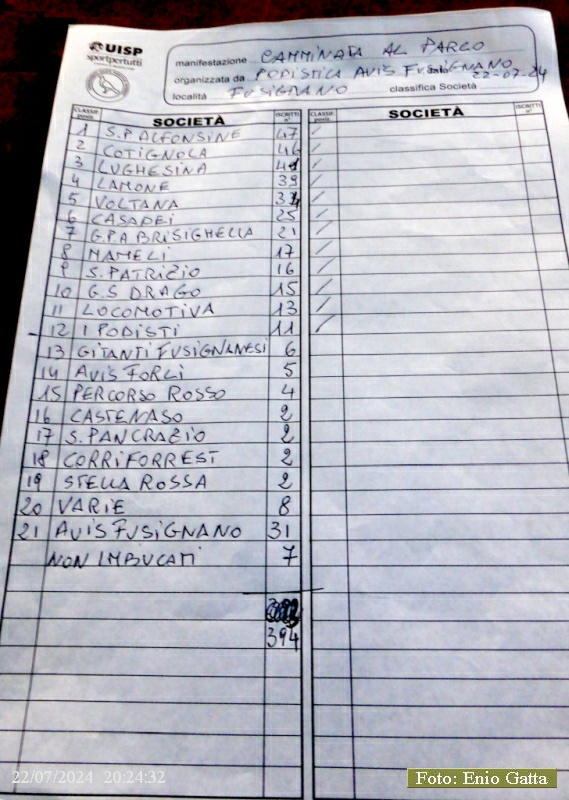 UISP
sportpertutti
manifestazione CAMMINATA AL PARCO
organizzata da PODISTICA AVIS FUSIGNANO
località FUSIGNANO 22-07-24
classifica Società
CLASSIF. SOCIETÀ ISCRITTI n° CLASSIF. SOCIETÀ ISCRITTI n°
1 S.P ALFONSINE 47
2 COTIGNOLA 46
3 LUGHESINA
4 LAMONE 39
5 VOLTANA
6 CASADEI 25
7 G.P.A BRISIGHELLA 21
8 MAMELI 17
9 S. PATRIZIO 16
10 G.S DRAGO 15
11 LOCOMOTIVA 13
12 I PODISTI 11
13 GITANTI FUSIGNANESI 6
14 AVIS FORLI 5
15 PERCORSO ROSSO 4
16 CASTENASO 2
17 S. PANCRAZIO 2
18 CORRIFORREST 2
19 STELLA ROSSA 2
20 VARIE 8
21 AVIS FUSIGNANO 31
NON IMBUCATI 7
394
22/07/2024 20:24:32
Foto: Enio Gatta